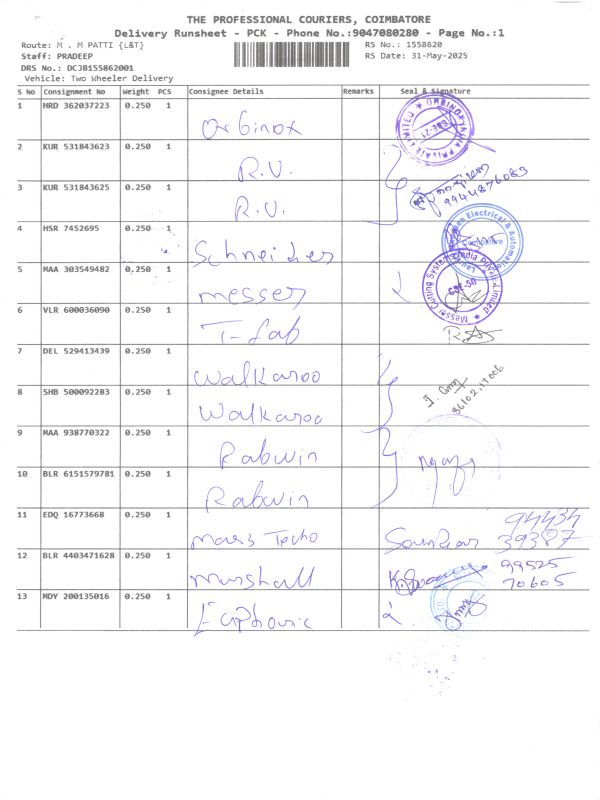 THE PROFESSIONAL COURIERS, COIMBATORE
Delivery Runsheet - PCK - Phone No.:9047080280 - Page No.:1
Route: M . M PATTI {L&T} RS No.: 1558620
Staff: PRADEEP RS Date: 31-May-2025
DRS No.: DCJB155862001
Vehicle: Two Wheeler Delivery
S No Consignment No Weight PCS Consignee Details Remarks Seal & Signature
1 HRD 362037223 0.250 1 Orbinox
2 KUR 531843623 0.250 1 R.V.
3 KUR 531843625 0.250 1 R.V. 9944876083
4 HSR 7452695 0.250 1 Schneider
5 MAA 303549482 0.250 1 messer
6 VLR 600036090 0.250 1 T-fab RAS
7 DEL 529413439 0.250 1 Walkaroo
8 SHB 500092283 0.250 1 Walkaroo
9 MAA 938770322 0.250 1 Rabwin
10 BLR 6151579781 0.250 1 Rabwin
11 EDQ 16773668 0.250 1 Mars Techo 94434
12 BLR 4403471628 0.250 1 Marshall 99525 70605
13 MDY 200135016 0.250 1